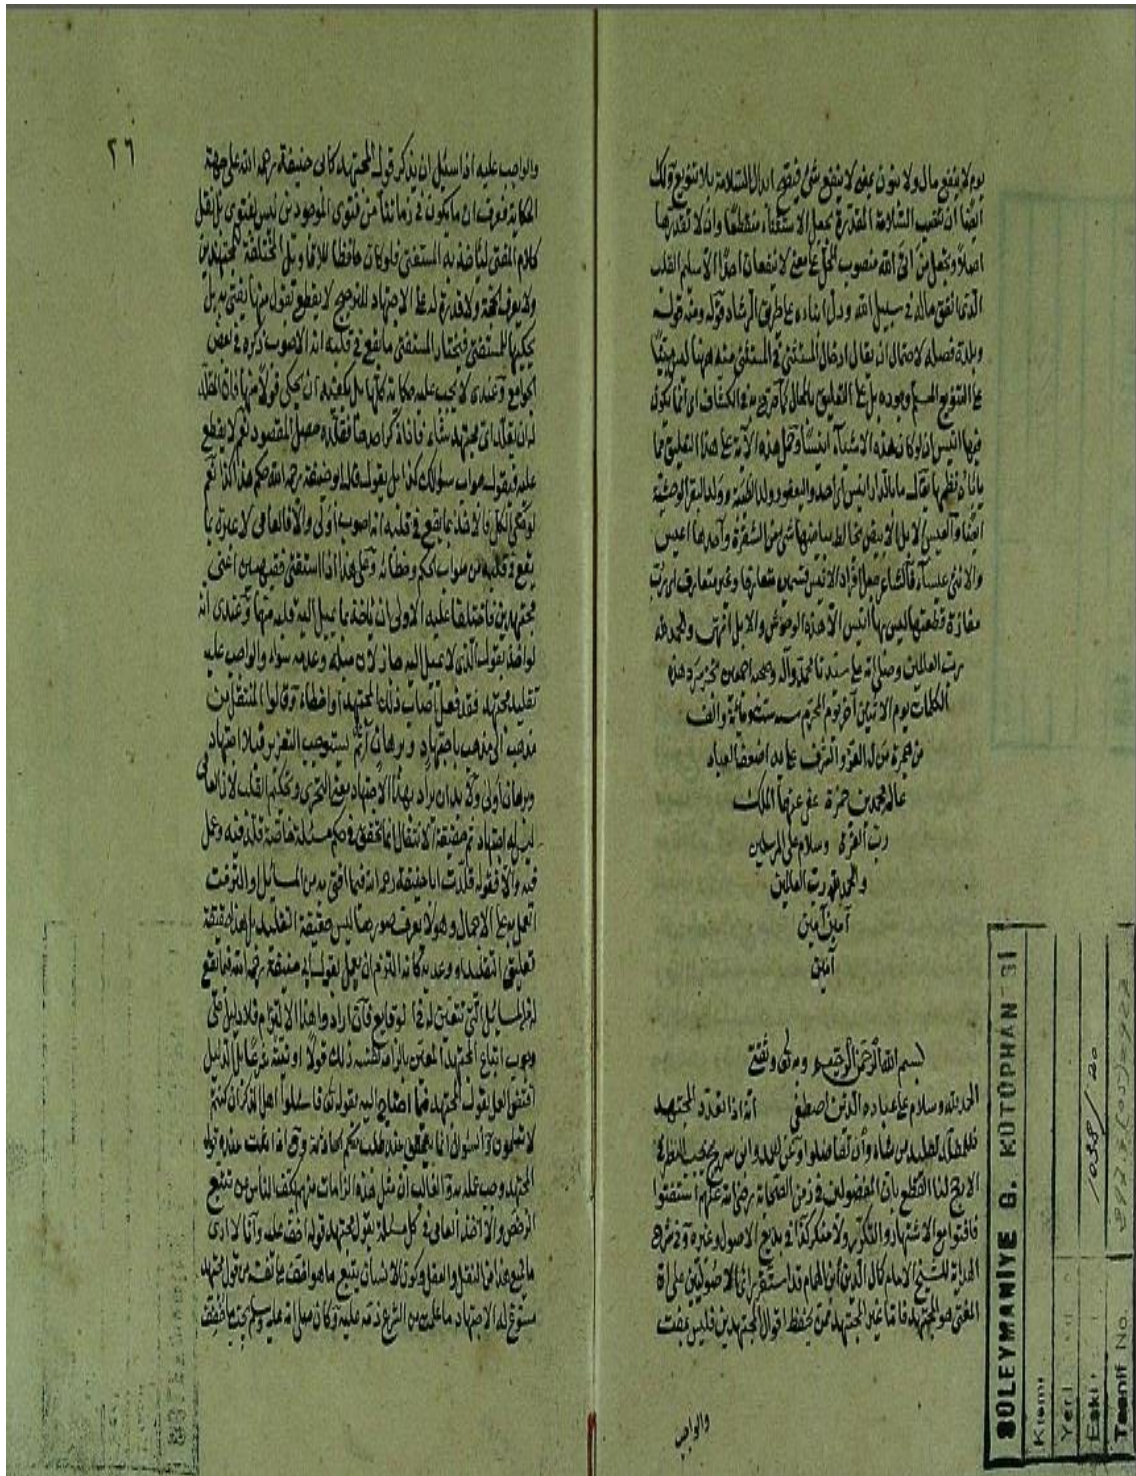 يوم لا ينفع مال ولا بنون بمعنى لا ينفع شئ فيقع ابدال السلامة بلا تنويع ولك
ايضا ان السلامة المقدرة بجعل الاستثناء منقطعا وان لا تقدرها
اصلا وتجعل من اتى الله منصوب المحل على معنى لا ينفعان احدا الا سليم القلب
الذى انفق ماله فى سبيل الله ودل ابناءه على طريق الرشاد قوله ومنه قوله
وبلدة فصله لاحتمال ان يقال ادخال المستثنى فى المستثنى منه ههنا ليس مبنيا
على التنويع بل على التعليق بالمحال كما صرح به فى الكشاف اى انما يكون
فيها انيس ان لو كان هذه الاشياء انيسا وحمل هذه الآية على هذا التعليق مما
يقال ما بالدار انيس اى احد واليعفور ولد الظبية وولد البقر الوحشية
ايضا والعيس الابل الابيض يخالط بياضها شئ من الشقرة واحدها اعيس
والانثى عيساء فالشاعر جعل افراد الانيس قسمين متعارفا وغير متعارف اى رب
مفازة قطعتها ليس بها انيس الا هذه الوحوش والابل انتهى والحمد لله
رب العالمين وصلى الله على سيدنا محمد وآله وصحبه اجمعين تحريرا هذه
الكلمات يوم الاثنين آخر يوم المحرم سنة ومائة والف
من هجرة من له العز والشرف على يد اضعف العباد
عالم محمد بن حمزة عفى عنهما الملك
رب العزة وسلام على المرسلين
والحمد لله رب العالمين
آمين آمين
آمين
بسم الله الرحمن الرحيم وثقتى
الحمد لله وسلام على عباده الذين اصطفى انه اذا تعدد المجتهد
فللمقلد تقليد من شاء وان تفاضلوا وعن احمد وابن سريج يجب النظر فى
الارجح لنا القطع بان المفضولين فى زمن الصحابة رضى الله عنهم استفتوا
فافتوا مع الاشتهار والتكرر ولا منكر كذا فى بديع الاصول وغيره وفى شرح
الهداية للشيخ الامام كمال الدين ابن الهمام قد استقر رأى الاصوليين على ان
المفتى هو المجتهد فاما غير المجتهد ممن يحفظ اقوال المجتهدين فليس بمفت
والواجب
٢٦
والواجب عليه اذا سئل ان يذكر قول المجتهد كابى حنيفة رحمه الله على جهة
الحكاية فعرف ان ما يكون فى زماننا من فتوى الموجودين ليس بفتوى بل نقل
كلام المفتى ليأخذ به المستفتى فلو كان حافظا للاقاويل المختلفة للمجتهدين
ولا يعرف الحجة ولا قدرة له على الاجتهاد للترجيح لا يقطع بقول منها يفتى به بل
يحكيها للمستفتى فيختار المستفتى ما يقع فى قلبه انه الاصوب ذكره فى بعض
الجوامع وعندى لا يجب عليه حكاية كلها بل يكفيه ان يحكى قولا منها فان المقلد
له ان يقلد اى مجتهد شاء فاذا ذكر احدها فقلده حصل المقصود نعم لا يقطع
عليه فيقول جواب سؤالك كذا بل يقول قال ابو حنيفة رحمه الله حكم هذا كذا نعم
لو حكى الكل فالاخذ بما يقع فى قلبه انه اصوب اولى والا فالعامى لا عبرة بما
يقع فى قلبه من صواب الحكم وخطائه وعلى هذا اذا استفتى فقيهين اعنى
مجتهدين فاختلفا عليه الاولى ان يأخذ بما يميل اليه قلبه منهما وعندى انه
لو اخذ بقول الذى لا يميل اليه جاز لان ميله وعدمه سواء والواجب عليه
تقليد مجتهد فقد فعل اصاب ذلك المجتهد او اخطاء وقالوا المنتقل من
مذهب الى مذهب باجتهاد وبرهان آثم يستوجب التعزير فبلا اجتهاد
وبرهان اولى ولا بد ان يراد بهذا الاجتهاد معنى التحرى وتحكيم القلب لان العامى
ليس له اجتهاد ثم حقيقة الانتقال انما تتحقق فى حكم مسئلة خاصة قلد فيه وعمل
فيه والا فقوله قلدت ابا حنيفة رحمه الله فيما افتى به من المسائل والتزمت
العمل به على الاجمال وهو لا يعرف صورها ليس حقيقة التقليد بل هذا حقيقة
تعليق التقليد او وعد به كانه التزم ان يعمل بقول ابى حنيفة رحمه الله فيما يقع
له من المسائل التى تتعين له فى الوقايع فان ارادوا هذا الالتزام فلا دليل على
وجوب اتباع المجتهد المعين بالزامه نفسه ذلك قولا او نية شرعا بل الدليل
اقتضى العمل بقول المجتهد فيما احتاج اليه بقوله تعالى فاسئلوا اهل الذكر ان كنتم
لا تعلمون والسؤال انما يتحقق عند طلب حكم الحادثة وح اذا ثبت عنده قول
المجتهد وجب عمله به والغالب ان مثل هذه الزامات منهم لكف الناس عن تتبع
الرخص والا اخذ العامى فى كل مسئلة بقول مجتهد قوله اخف عليه وانا لا ادرى
ما يمنع هذا من النقل والعقل وكون الانسان يتبع ما هو اخف على نفسه من قول مجتهد
مسوغ له الاجتهاد ما علمت من الشرع ذمه عليه وكان صلى الله عليه وسلم يحب ما خفف
SÜLEYMANİYE G. KÜTÜPHANESİ
Kısmı
Yeri
Eski
1038/20
Tasnif No.